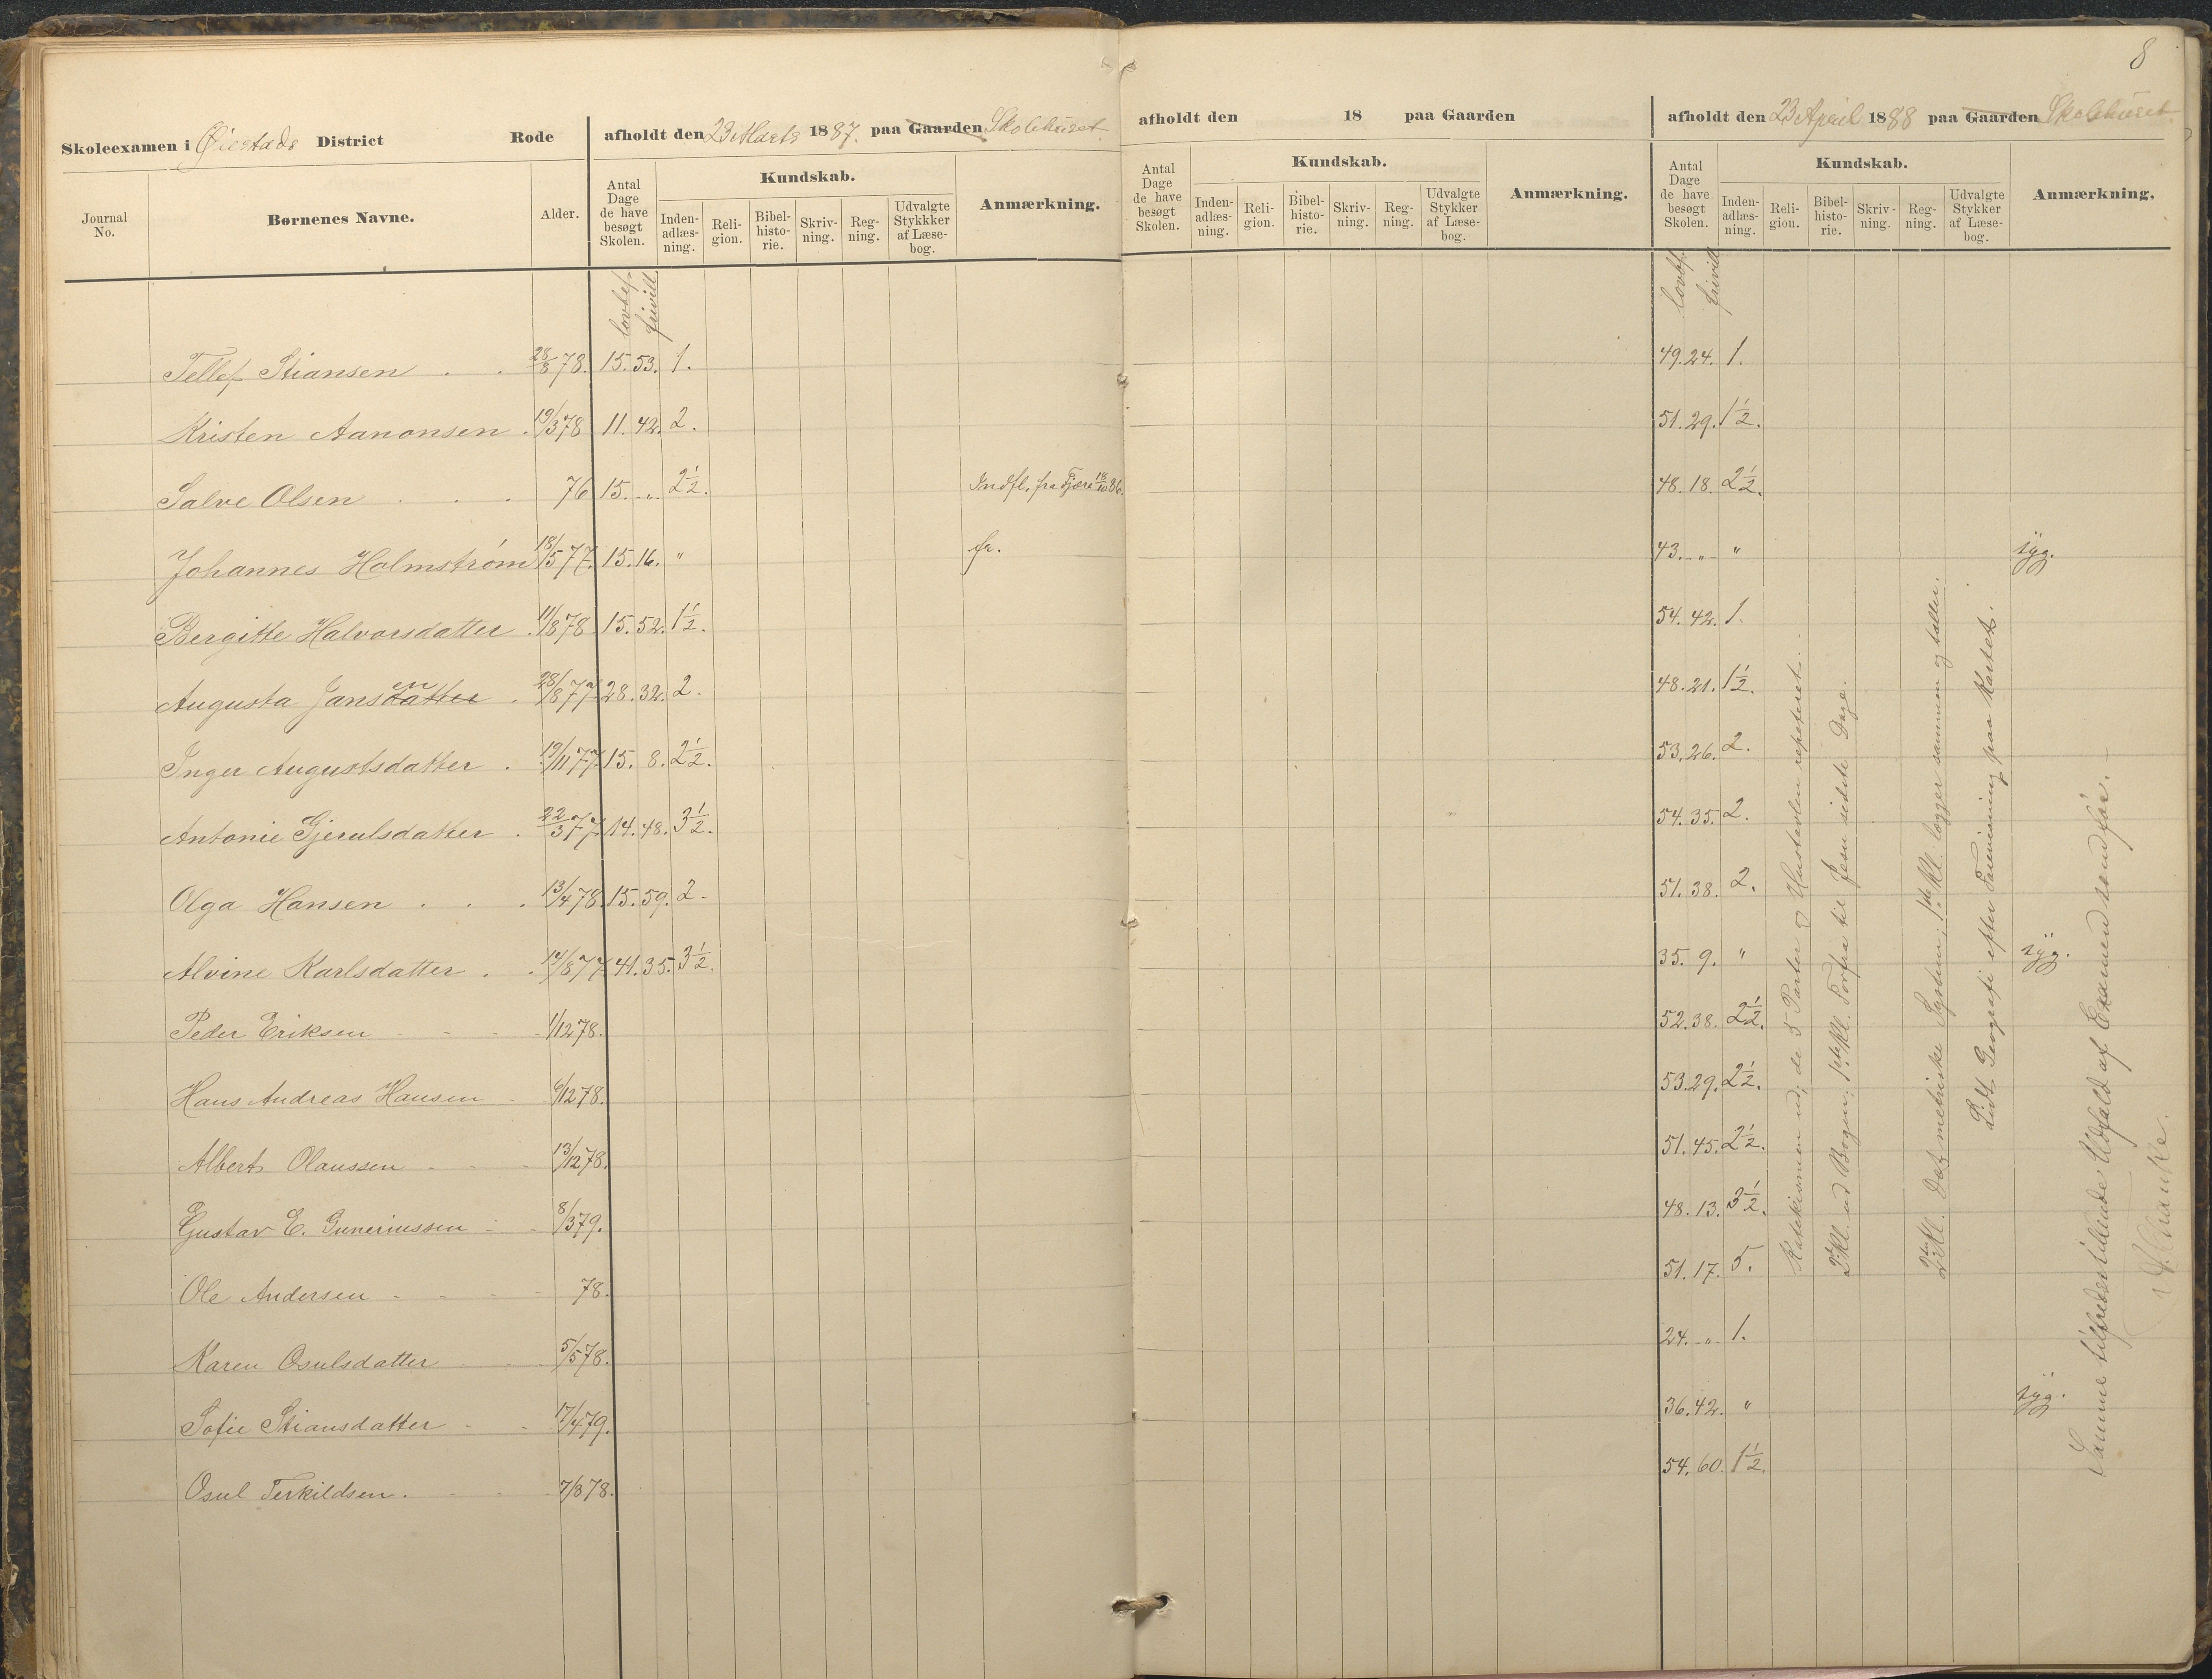 8
Skoleexamen i Øiestads District Rode afholdt den 23 Marts 1887. paa Gaarden Skolehuset
afholdt den 18 paa Gaarden
afholdt den 23 April 1888 paa Gaarden Skolehuset
Journal No. Børnenes Navne. Alder. Antal Dage de have besøgt Skolen. Kundskab. Inden-adlæs-ning. Reli-gion. Bibel-histo-rie. Skriv-ning. Reg-ning. Udvalgte Stykker af Læse-bog. Anmærkning.
Antal Dage de have besøgt Skolen. Kundskab. Inden-adlæs-ning. Reli-gion. Bibel-histo-rie. Skriv-ning. Reg-ning. Udvalgte Stykker af Læse-bog. Anmærkning.
Antal Dage de have besøgt Skolen. Kundskab. Inden-adlæs-ning. Reli-gion. Bibel-histo-rie. Skriv-ning. Reg-ning. Udvalgte Stykker af Læse-bog. Anmærkning.
lovbef. frivill. lovbef. frivill
Tellef Stiansen . . 28/8 78. 15. 53. 1. 49. 24. 1.
Kristen Aanonsen . 19/3 78 11. 42. 2. 51. 29. 1½.
Salve Olsen . . . 76 15. „ 2½. Indfl. fra Fjære 18/10 86. 48. 18. 2½.
Johannes Holmstrøm 18/5 77. 15. 16. „ fr. 43. „ „ syg.
Bergitte Halvorsdatter . 11/8 78. 15. 52. 1½. 54. 42. 1.
Augusta Jansdatter en . 28/8 77. 28. 32. 2. 48. 21. 1½.
Inger Augustsdatter . 19/11 77. 15. 8. 2½. 53. 26. 2.
Antonie Gjerulsdatter . 22/3 77. 14. 48. 3½. 54. 35. 2.
Olga Hansen . . . 13/4 78. 15. 59. 2. 51. 38. 2.
Alvine Karlsdatter . . 14/8 77. 41. 35. 3½. 35. 9. „ syg.
Peder Eriksen 1/12 78. 52. 38. 2½.
Hans Andreas Hansen 6/12 78. 53. 29. 2½.
Albert Olaussen 13/12 78. 51. 45. 2½.
Gustav E. Gunerinssen 8/3 79. 48. 13. 3½.
Ole Andersen 78. 51. 17. 5.
Karen Osulsdatter 5/5 78. 24. „ 1.
Sofie Stiansdatter 17/4 79. 36. 42. „ syg.
Osul Terkildsen. 7/8 78. 54. 60. 1½.
Katekismen ud; de 5 Parter og Hustavlen repeteret.
2 Kl. ud Bogen; 1ste Kl. Forfra til Jesu sidste Dage.
2 Kl. Det metriske System; 1ste Kl. lægger sammen og tæller.
Lidt Geografi efter Foreviisning paa Kartet.
Samme tilfredsstillende Udfald af Examen som før.